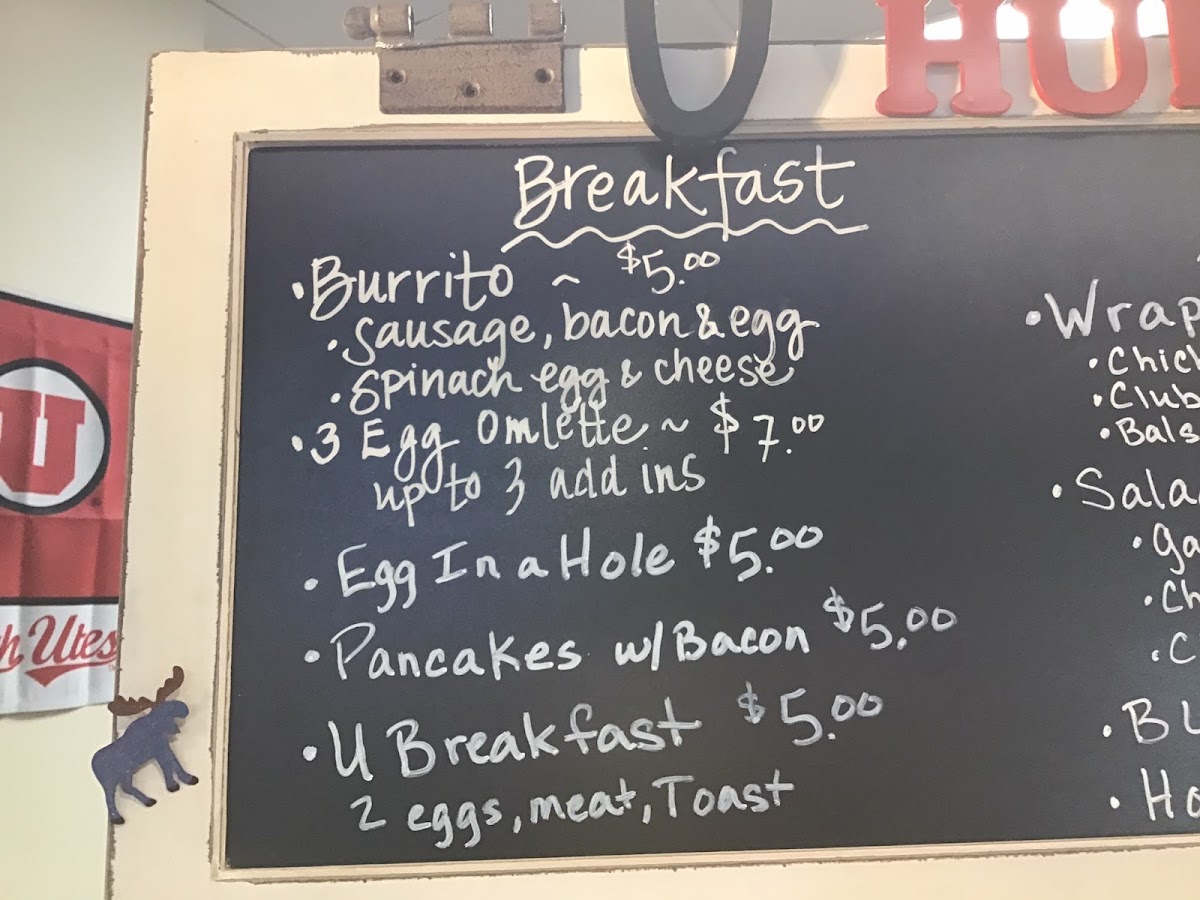 U HU
Breakfast
• Burrito ~ $5.00
• Sausage, bacon & egg
• Spinach egg & cheese
• 3 Egg Omlette ~ $7.00
up to 3 add ins
• Egg In a Hole $5.00
• Pancakes w/Bacon $5.00
• U Breakfast $5.00
2 eggs, meat, Toast
• Wrap
• Chic
• Club
• Bals
• Sala
• ga
• Ch
• C
• Bu
• Ho
U
h Utes